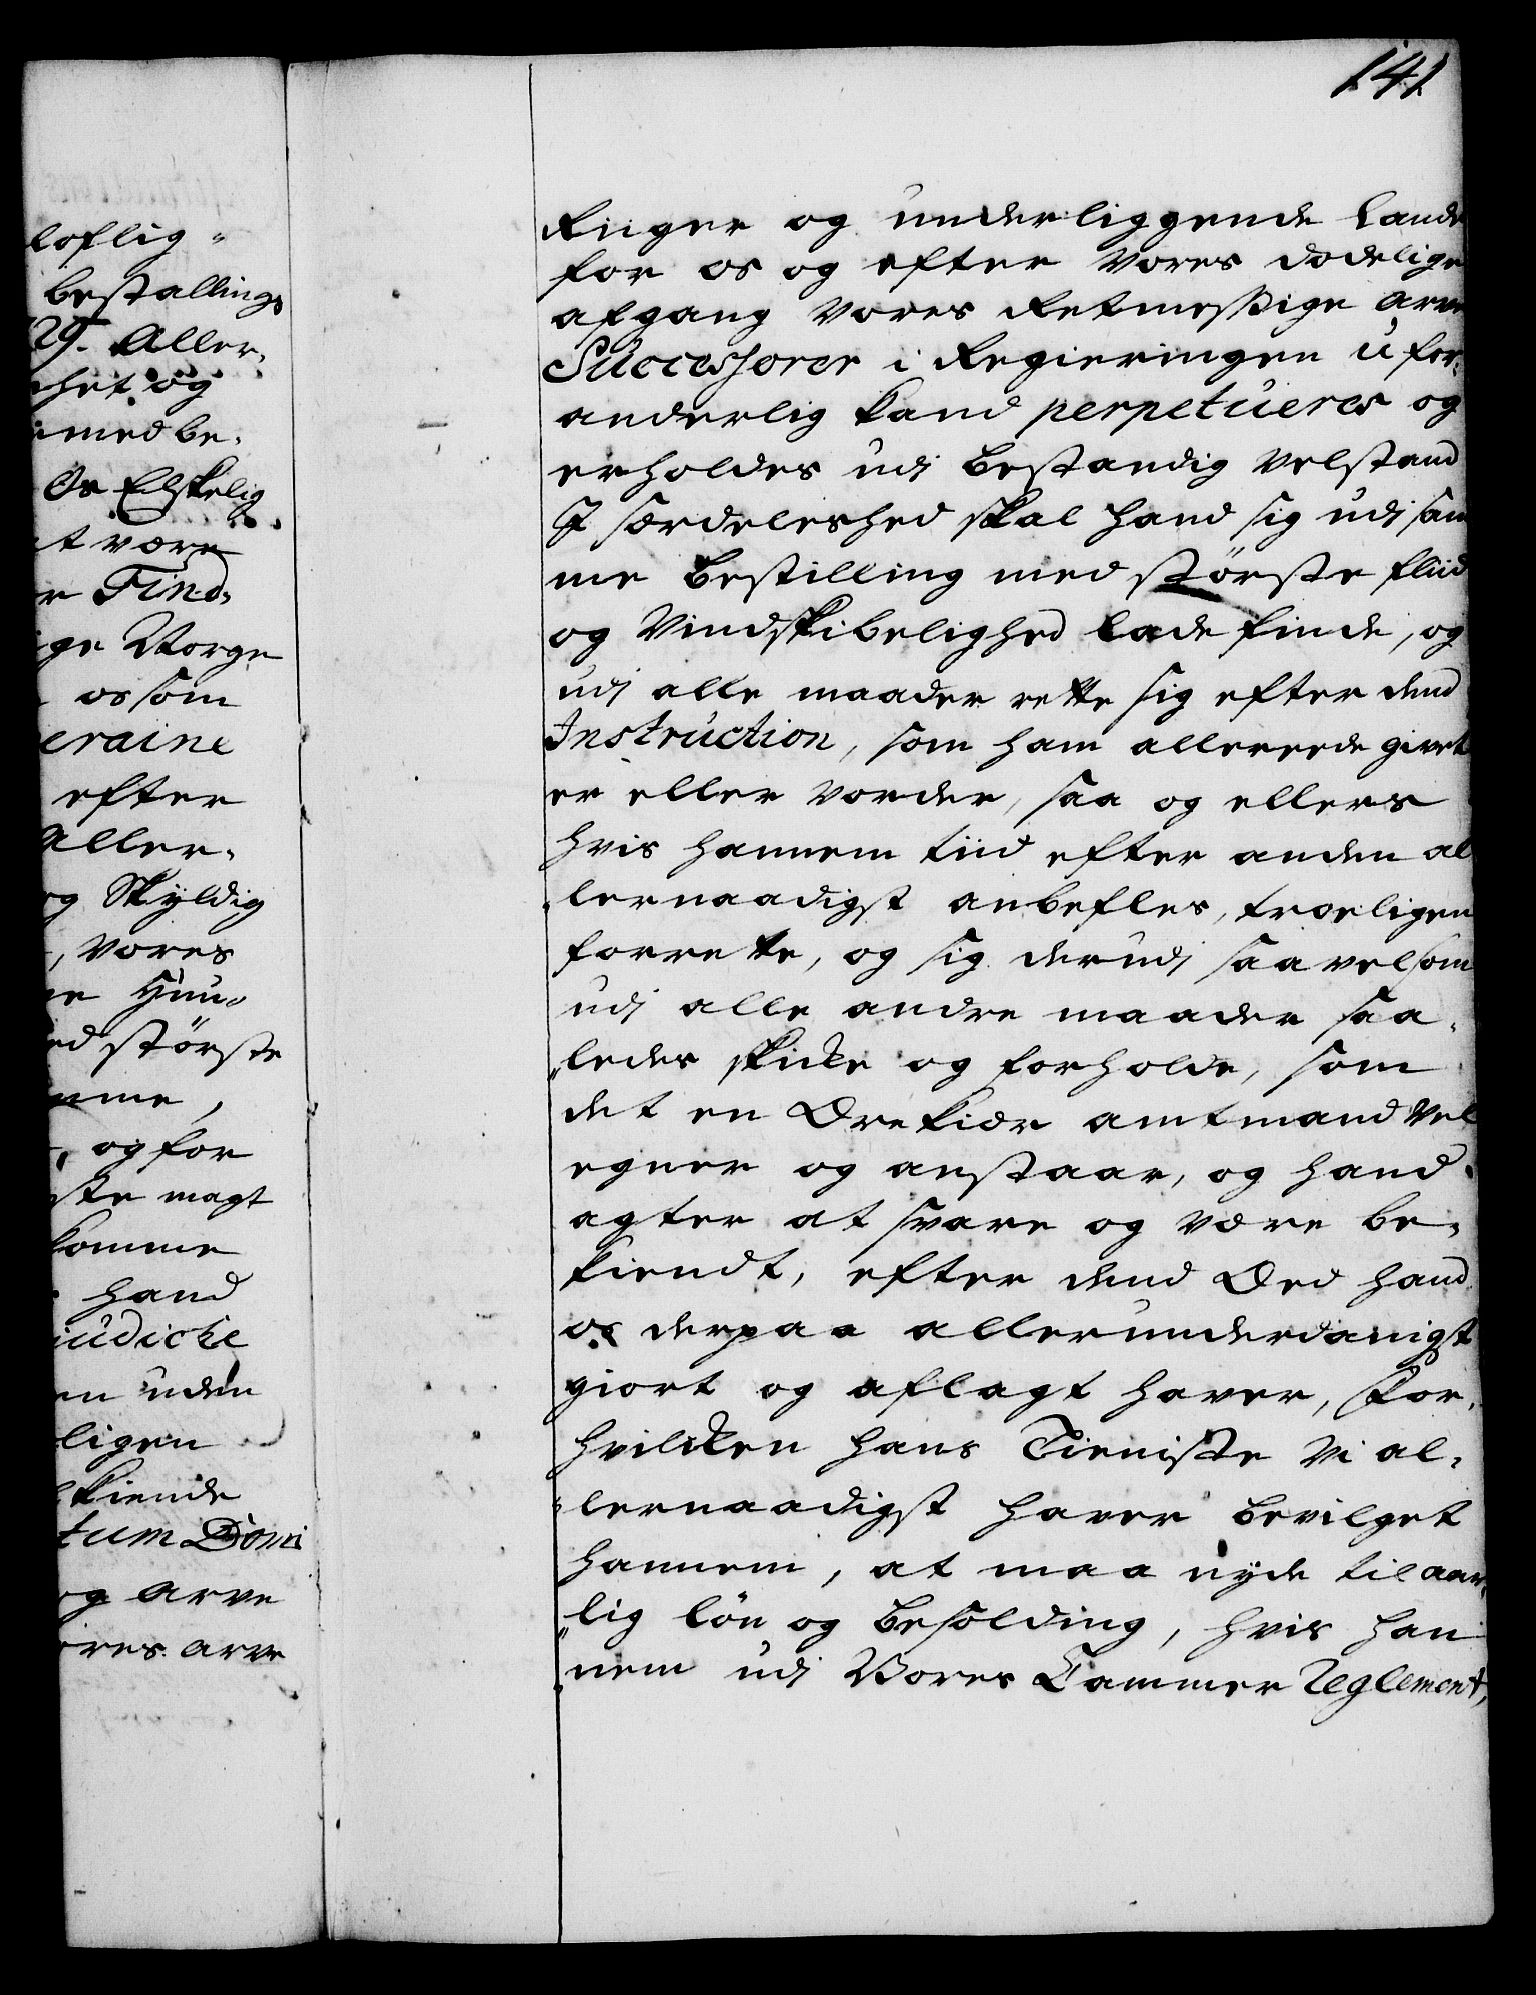 141
loflig-
bestallings
29. Aller-
het og
med be-
Os Elskelig
t være
r Find-
ige Norge
os som
eraine
efter
Aller-
og Skyldig
, vores
ne Huu-
ed störste
mme,
, og for
ste magt
komme
hand
iudiche
en uden
ligen
kiende
tum Domi
og arve
ores arve
Riiger og underliggende Lande
for os og efter Vores dødelige
afgang Vores Retmessige arve
Successorer i Regieringen ufor-
anderlig kand perpetueres og
erholdes udj bestandig velstand
I særdeleshed skal hand sig udj sam
me bestilling med störste fliid
og Vindskibelighed lade finde, og
udj alle maader rette sig efter dend
Instruction, som ham allereede givet
er eller vorder, saa og ellers
hvis hannem tiid efter anden al
lernaadigst anbefles, troeligen
forrette, og sig derudj saavelsom
udj alle andre maader saa-
ledes skicke og forholde, som
det en Ærekiær amtmand vel
egner og anstaar, og hand
agter at svare og være be-
kiendt, efter dend Eed hand
os derpaa allerunderdanigst
giort og aflagt haver, For
hvilcken hans Tieniste Vi al-
lernaadigst haver bevilget
hannem, at maa nyde til aar-
lig lön og besolding, hvis han
nem udj Vores Cammer Reglement,